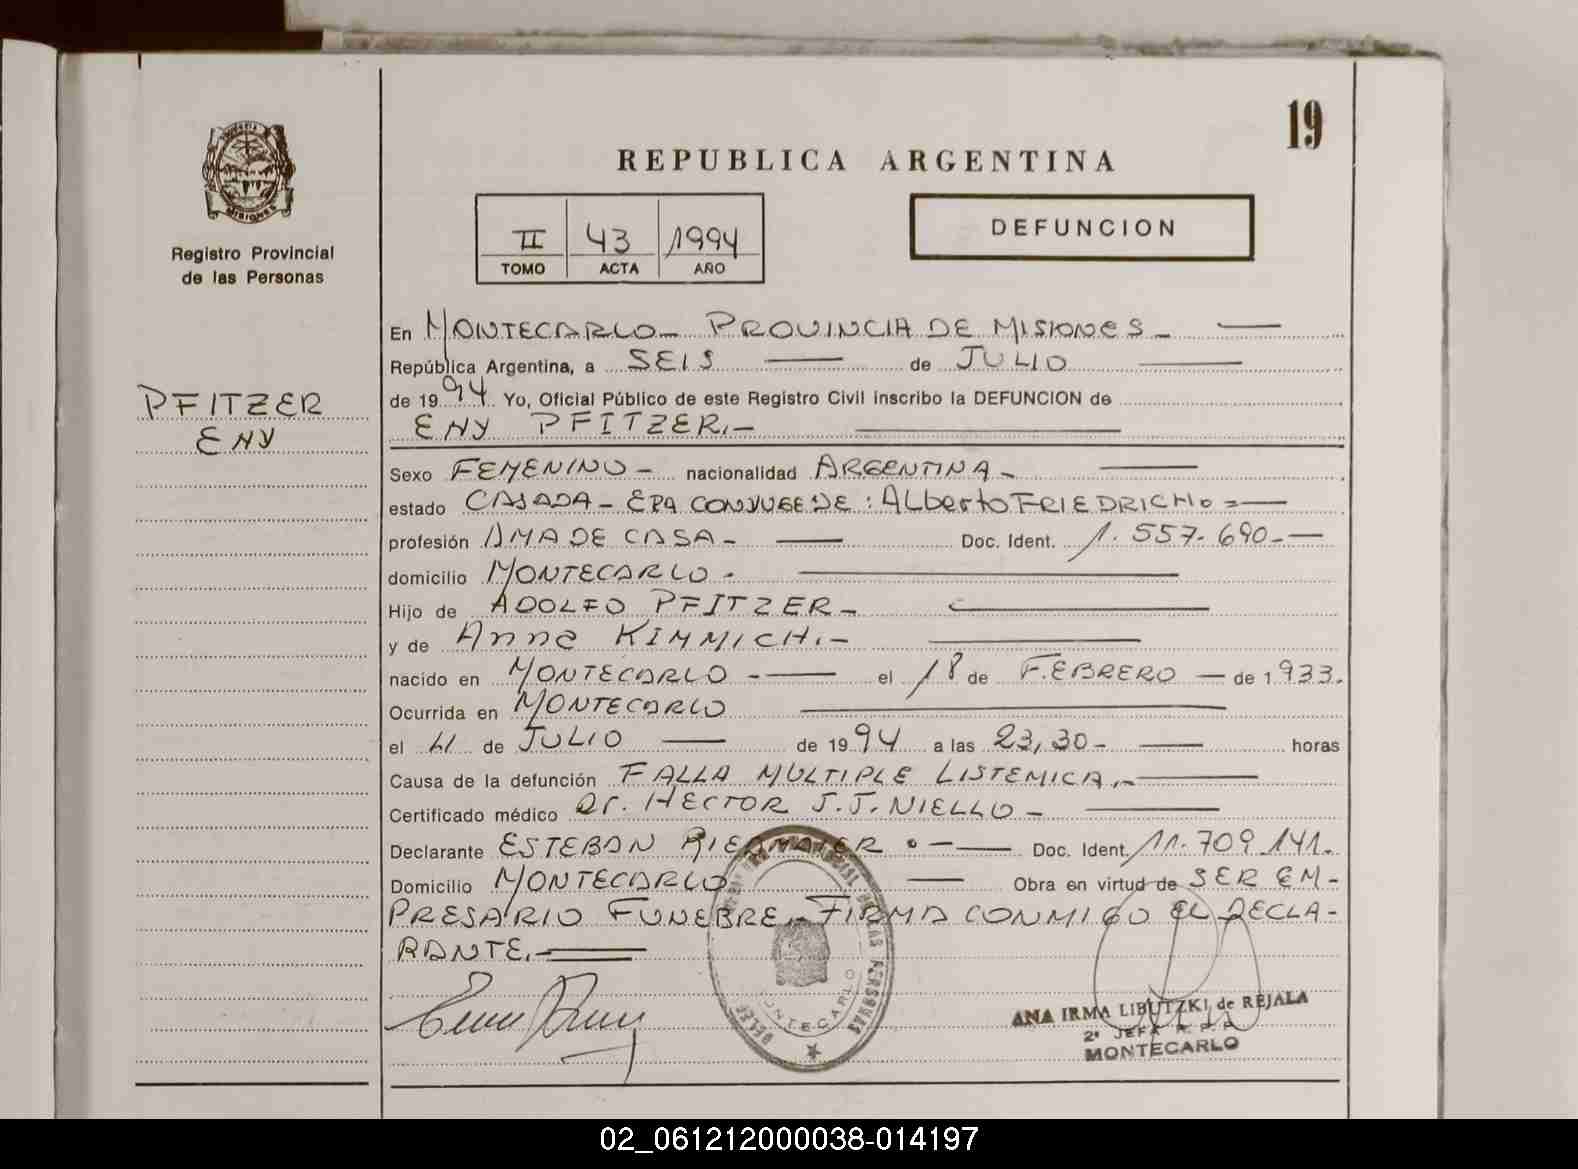 19
REPUBLICA ARGENTINA
MISIONES
Registro Provincial
de las Personas
II 43 1994
TOMO ACTA AÑO
DEFUNCION
PFITZER
ENY
En MONTECARLO - PROVINCIA DE MISIONES -
República Argentina, a SEIS de JULIO
de 1994 Yo, Oficial Público de este Registro Civil inscribo la DEFUNCION de
ENY PFITZER.-
Sexo FEMENINO - nacionalidad ARGENTINA -
estado CASADA - ERA CONYUGE DE: Alberto FRIEDRICH =
profesión AMA DE CASA - Doc. Ident. 1.557.690.-
domicilio MONTECARLO -
Hijo de ADOLFO PFITZER -
y de Anna KIMMICH.-
nacido en MONTECARLO - el 18 de FEBRERO de 1.933.
Ocurrida en MONTECARLO
el de JULIO de 1994 a las 23,30 - horas
Causa de la defunción FALLA MULTIPLE LISTEMICA.-
Certificado médico Dr. HECTOR J.J. NIELLO -
Declarante ESTEBAN RIEDMAIER - Doc. Ident. 11.709.141.
Domicilio MONTECARLO Obra en virtud de SER EM-
PRESARIO FUNEBRE.- FIRMA CONMIGO EL DECLA-
RANTE.-
MONTECARLO
ANA IRMA LIBUTZKI de REJALA
2ª JEFA R. P. P.
MONTECARLO
02_061212000038-014197